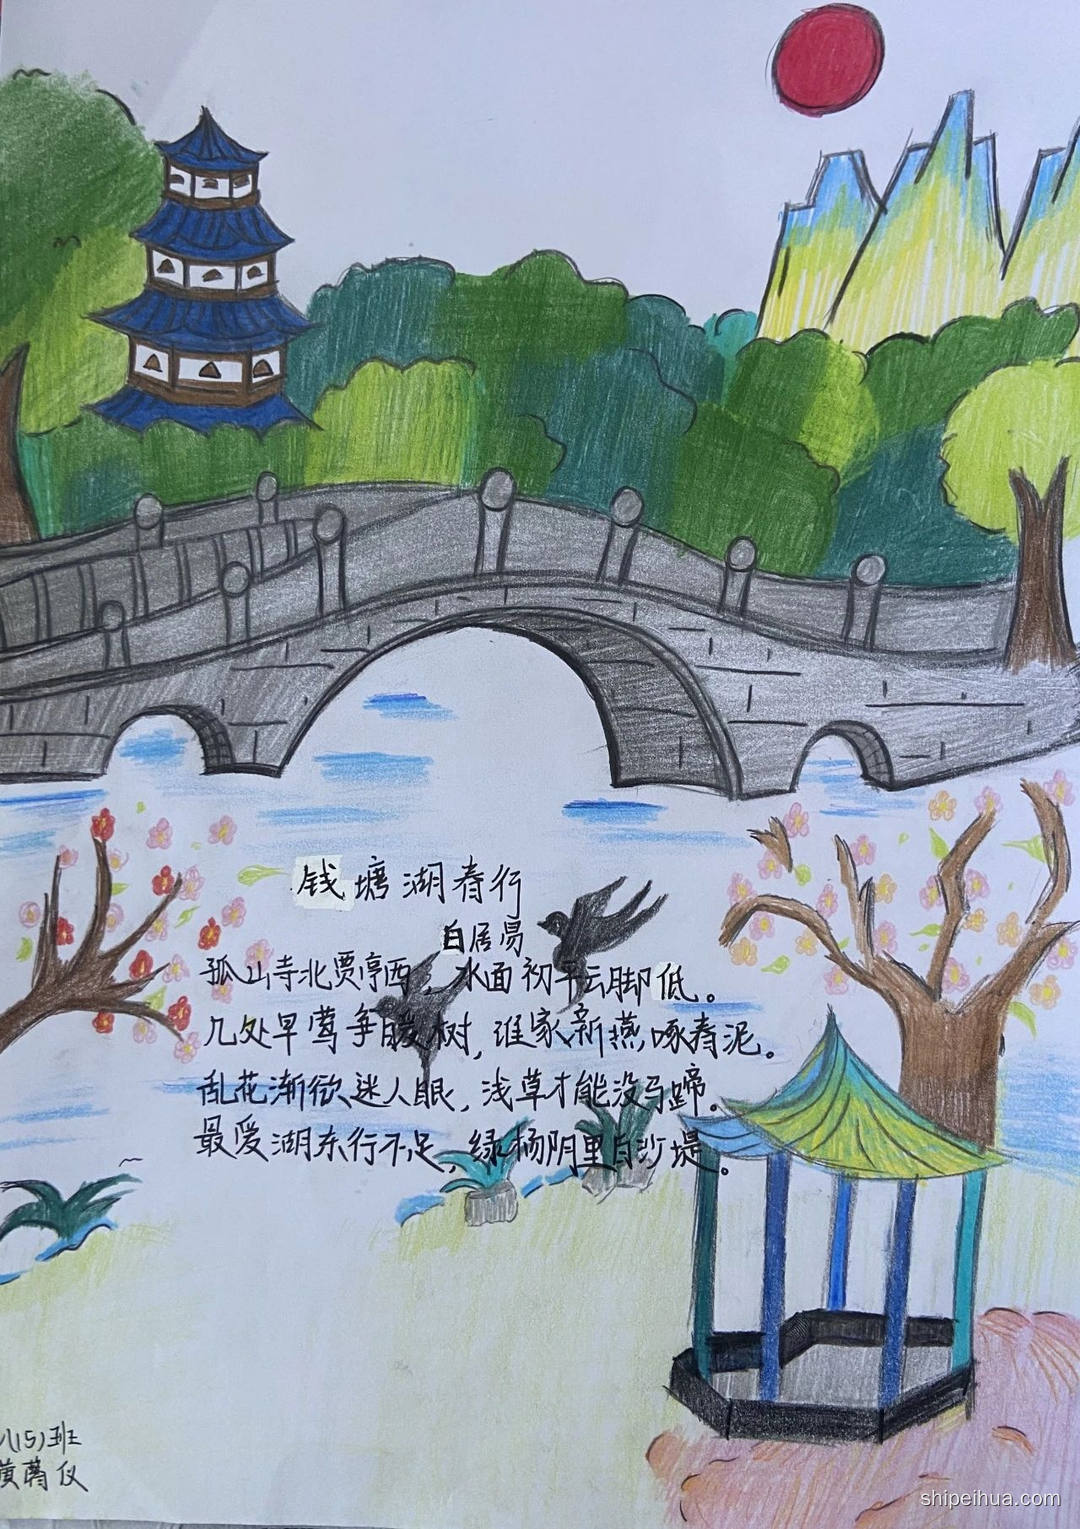 钱塘湖春行
白居易
孤山寺北贾亭西，水面初平云脚低。
几处早莺争暖树，谁家新燕啄春泥。
乱花渐欲迷人眼，浅草才能没马蹄。
最爱湖东行不足，绿杨阴里白沙堤。
八(15)班
黄蔼仪
shipeihua.com